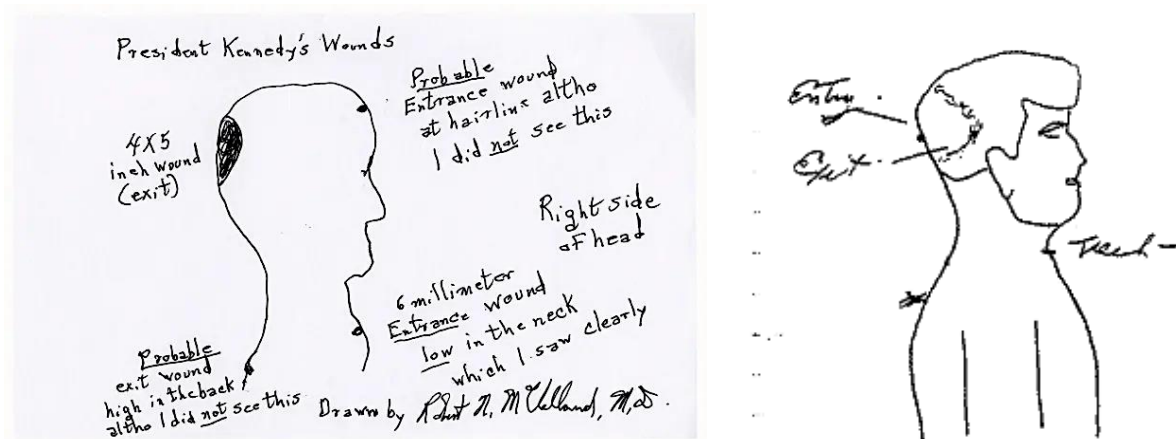 President Kennedy's Wounds
Probable
Entrance wound
at hairline altho
I did not see this
4X5
inch wound
(exit)
Right side
of head
6 millimeter
Entrance wound
low in the neck
which I saw clearly
Probable
exit wound
high in the back
altho I did not see this
Drawn by Robert N. McClelland, M.D.
Exit